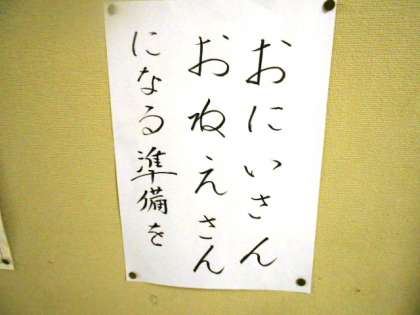 おにいさん
おねえさん
になる準備を